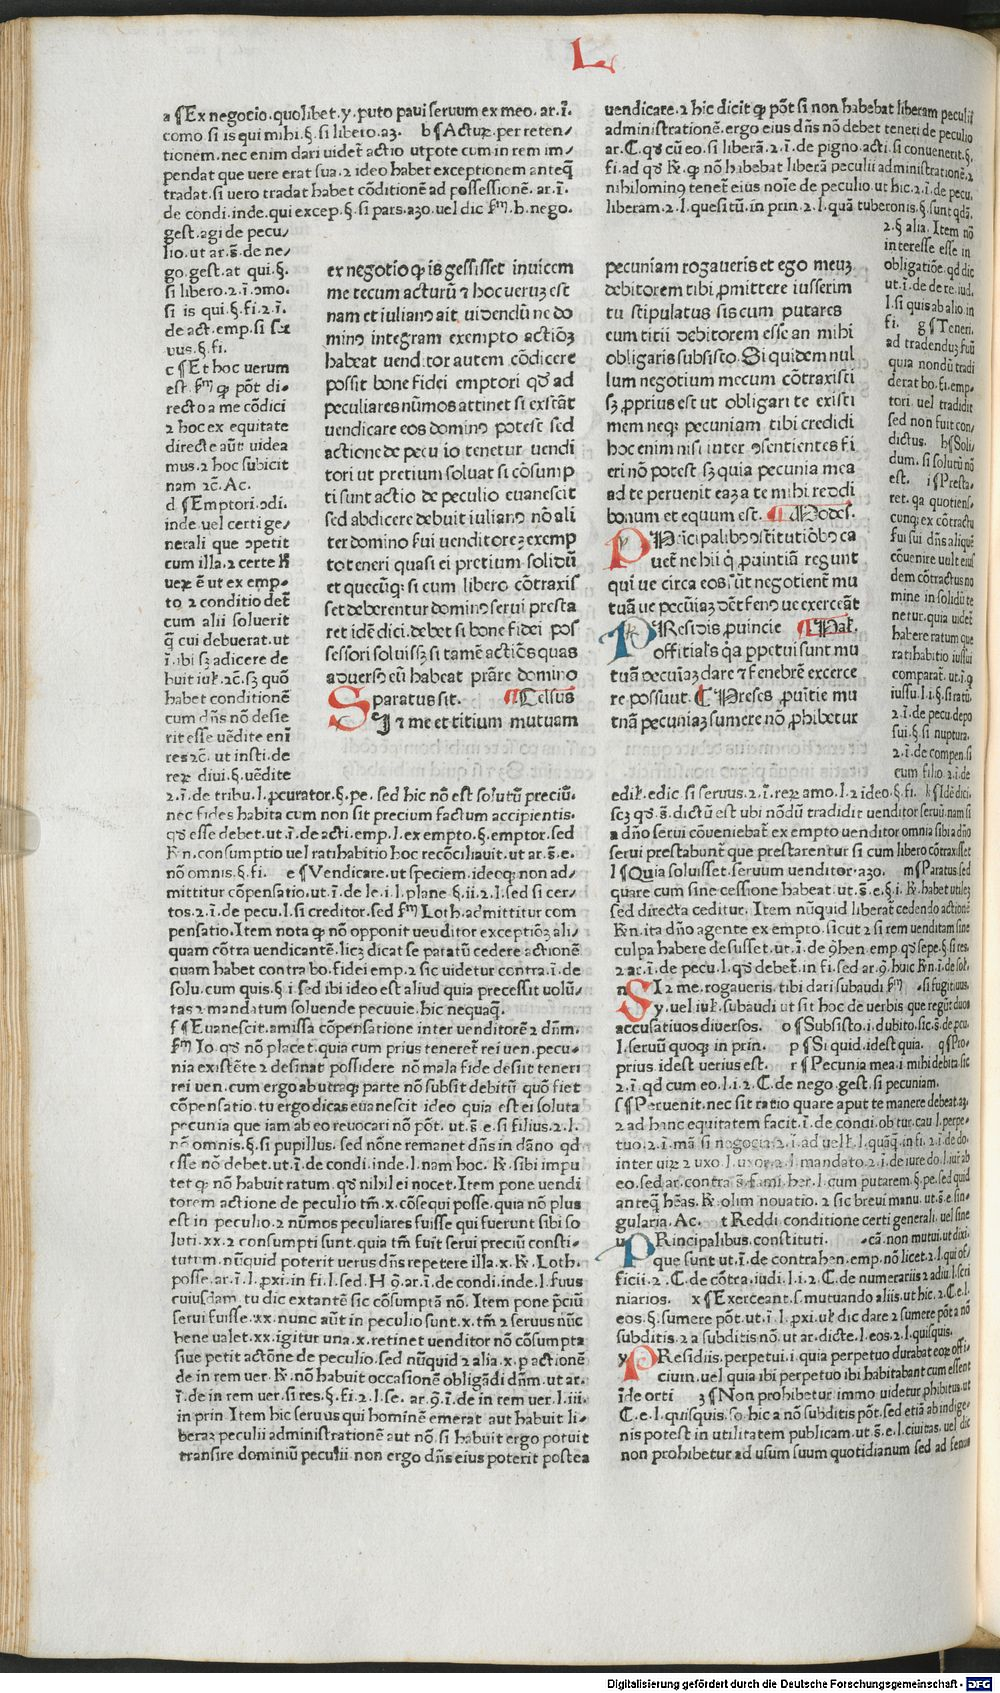 L
a ¶Ex negocio.quolibet.y.puto paui seruum ex meo.ar.ī.
como si is qui mihi.§.si libero.aȝ. b ¶Actuꝝ.per reten/
tionem.nec enim dari uidet᷑ actio utpote cum in rem im/
pendat que uere erat sua.⁊ ideo habet exceptionem anteq̄
tradat.si uero tradat habet cōditionē ad possessionē.ar.ī.
de condi.inde.qui excep.§.si pars.aȝo.uel dic ẜm.b.nego.
gest.agi de pecu/
lio.ut ar.s̄.de ne/
go.gest.at qui.§.
si libero.⁊.ī.ɔmo.
si is qui.§.fi.⁊.ī.
de act.emp.si ser
uus.§.fi.
c ¶Et hoc uerum
est.ẜm ꝙ pōt di/
recto a me cōdici
⁊ hoc ex equitate
directe aūt uidea
mus.⁊ hoc subicit
nam ⁊c̄.Ac.
d ¶Emptori.ɔdi.
inde.uel certi ge/
nerali que ɔpetit
cum illa.⁊ certe ℞
ueꝝ ē ut ex emp/
to ⁊ conditio det᷑
cum alii soluerit
q̄ cui debuerat.ut
ī.ibi sȝ adicere de
buit iul.⁊c̄.sȝ quō
habet conditionē
cum dn̄s nō desie
rit esse uēdite enī
res ⁊c̄.ut insti.de
reꝝ diui.§.uēdite
⁊.ī.de tribu.l.ꝓcurator.§.pe.sed hic nō est solutū preciū.
nec fides habita cum non sit precium factum accipientis.
qd̓ esse debet.ut.ī.de acti.emp.l.ex empto.§.emptor.sed
℞n.consumptio uel ratihabitio hoc recōciliauit.ut ar.s̄.e.
nō omnis.§.fi. e ¶Vendicare.ut speciem.ideoqȝ non ad/
mittitur cōpensatio.ut.ī.de le.i.l.plane §.ii.⁊.l.sed si cer/
tos.⁊.ī.de pecu.l.si creditor.sed ẜm Loth.admittitur com
pensatio.Item nota ꝙ nō opponit uenditor exceptiōȝ ali/
quam cōtra uendicantē.licȝ dicat se paratū cedere actionē
quam habet contra bo.fidei emp.⁊ sic uidetur contra.ī.de
solu.cum quis.§.i sed ibi ideo est aliud quia precessit uolū/
tas ⁊ mandatum soluende pecunie.hic nequaq̄.
f ¶Euanescit.amissa cōpensatione inter uenditorē ⁊ dn̄m.
ẜm Io.qd̓ nō placet.quia cum prius teneret᷑ rei uen.pecu/
nia existēte ⁊ desinat possidere nō mala fide desiit teneri
rei uen.cum ergo ab utraqȝ parte nō subsit debitū quō fiet
cōpensatio.tu ergo dicas euanescit ideo quia est ei soluta
pecunia que iam ab eo reuocari nō pōt.ut.s̄.e.si filius.⁊.l.
nō omnis.§.si pupillus.sed nōne remanet dn̄s in dāno qd
esse nō debet.ut.ī.de condi.inde.l.nam hoc.℞.sibi impu
tet ꝙ nō habuit ratum.qd̓ nihil ei nocet.Item pone uendi
torem actione de peculio tm̄.x.cōsequi posse.quia nō plus
est in peculio.⁊ nūmos peculiares fuisse qui fuerunt sibi so
luti.xx.⁊ consumpti sunt.quia tm̄ fuit serui preciū consti/
tutum.nūquid poterit uerus dn̄s repetere illa.x.℞.Loth.
posse.ar.ī.l.ꝓxi.in fi.l.sed.H ꝯ.ar.ī.de condi.inde.l.fuus
cuiusdam.tu dic extantē sic cōsumptā nō.Item pone p̄ciū
serui fuisse.xx.nunc aūt in peculio sunt.x.tm̄ ⁊ seruus nūc
bene ualet.xx.igitur una.x.retinet uenditor nō cōsumpta
siue petit actōne de peculio.sed nūquid ⁊ alia.x.p actionē
de in rem uer.℞.nō habuit occasionē obligādi dn̄m.ut ar.
ī.de in rem uer.si res.§.fi.⁊.l.se. ar.ꝯ.ī.de in rem uer.l.iii.
in prin.Item hic seruus qui hominē emerat aut habuit li/
beraȝ peculii administrationē aut nō.si habuit ergo potuit
transire dominiū peculii.non ergo dn̄s eius poterit postea
ex negotio ꝙ is gessisset inuicem
me tecum acturū ⁊ hoc ueruȝ est
nam et iulianꝰ ait uidendū ne do
minꝰ integram ex empto actiōȝ
habeat venditor autem cōdicere
possit bone fidei emptori qd̓ ad
peculiares nūmos attinet si exstāt
vendicare eos dominꝰ potest sed
actione de peculio tenetur vendi
tori ut pretium soluat si cōsump
ti sunt actio de peculio euanescit
sed abdicere debuit iulianꝰ nō ali
ter domino fui venditoreȝ ex emp
to teneri quasi ei pretium solidū
et quecūqȝ si cum libero cōtraxis
set deberentur dominꝰ serui presta
ret idē dici.debet si bone fidei pos
sessori soluissȝ si tamē actiōes quas
aduersꝰ eū habeat pr̄are domino
paratus sit. ¶Celsus
SI ⁊ me et titium mutuam
uendicare.⁊ hic dicit ꝙ pōt si non habebat liberam peculii
administrationē.ergo eius dn̄s nō debet teneri de peculio
ar.C.qd̓ cū eo.si liberā.⁊.ī.de pigno.acti.si conuenerit.§.
fi.ad qd̓ ℞.ꝙ nō habebat liberā peculii administrationē.⁊
nihilominꝰ tenet᷑ eius noīe de peculio.ut hic.⁊.ī.de pecu.
liberam.⁊.l.quesitū.in prin.⁊.l.quā tuberonis.§.sunt qdā.
⁊.§ alia.Item nō
interesse esse in
obligatiōe.qd dic
ut.ī.de de re iud.
l.si quis ab alio.in
fi. g ¶Teneri.
ad tradenduȝ suū
quia nondū tradi
derat bo.fi.emp/
tori.uel tradidit
sed non fuit con/
dictus. h ¶Soli/
dum.si solutū nō
est. i ¶Presta/
ret.qa quotiens/
cunqȝ ex cōtractu
sui sui dn̄s aliquē
cōuenire uult eius
dem cōtractus no
mine in solidū te
netur.quia uidet᷑
habere ratum que
ratihabitio iussui
comparat᷑.ut.ī.ꝙ
iussu.l.i.§.si ratū.
⁊.ī.de pecu.depo
sui.§.si nuptura.
⁊.ī.de compen.si
cum filio.⁊.ī.de
edil.edic.si seruus.⁊.ī.reꝝ amo.l.⁊ ideo.§.fi. k ¶Idē dici.
scȝ qd̓.s̄.dictū est ubi nōdū tradidit venditor seruū.nam si
a dn̄o serui cōueniebat᷑ ex empto venditor omnia sibi a dn̄o
serui prestabunt᷑ que prestarentur si cum libero cōtraxisset
l ¶Quia soluisset.seruum uenditor.aȝo. m ¶Paratus.sed
quare cum sine cessione habeat.ut.s̄.e.§.i.℞.habet utileȝ
sed directa ceditur.Item nūquid liberat᷑ cedendo actionē
℞n.ita dn̄o agente ex empto.sicut ⁊ si rem uenditam sine
culpa habere desisset.ut.ī.de ꝯhen.emp.qd̓ sepe.§.si res.
⁊ ar.ī.de pecu.l.qd̓ debet᷑.in fi.sed ar.ꝯ.huic ℞n.ī.de sol.
n SI ⁊ me.rogaueris.tibi dari subaudi ẜm .si fugitiuus.
y.uel iul.subaudi ut sit hoc de uerbis que regūt duos
accusatiuos diuersos. o ¶Subsisto.i.dubito.sic.s̄.de pcu
l.seruū quoqȝ in prin. p ¶Si quid.idest quia. q ¶Pro/
prius.idest uerius est. r ¶Pecunia mea.i.mihi debita.sic
⁊.ī.qd cum eo.l.i.⁊.C.de nego.gest.si pecuniam.
s ¶Peruenit.nec sit ratio quare aput te manere debeat.aȝ.
⁊ ad hanc equitatem facit.ī.de condi.ob tur.cau l.perpe/
tuo.⁊.ī.mā si negocia.⁊.ī.ad uell.l.quāq̄.in fi.⁊.ī.de do.
inter uiꝝ ⁊ uxo.l.uxor.⁊.l.mandato.⁊.ī.de iure do.l.iur̄ ab
eo.sed ar.contra s̄.fami.her.l.cum putarem.§.pe.sed quid
anteq̄ hēas.℞.olim nouatio.⁊ sic breui manu.ut.s̄.e.sin/
gularia.Ac. t Reddi conditione certi generali.uel sine
u PRincipalibus.constituti. .cā.non mutui.ut dixi.
que sunt ut.ī.de contrahen.emp.nō licet.⁊.l.qui of/
ficii.⁊.C.de cōtra.iudi.l.i.⁊.C.de numerariis ⁊ adiu.l.scri
niarios. x ¶Exerceant.s.mutuando aliis.ut hic.⁊.C.e.l.
eos.§.sumere pōt.ut.ī.l.pxi.ul.dic dare ⁊ sumere pōt a nō
subditis.⁊ a subditis nō.ut ar.dicte.l.eos.⁊.l.quisquis.
y PResidiis.perpetui.i.quia perpetuo durabat eoꝝ offi/
cium.uel quia ibi perpetuo ibi habitabant cum essent
īde orti ȝ ¶Non prohibetur.immo uidetur.ꝓhibitus.ut
C.e.l.quisquis.so.hic a nō subditis pōt.sed etiā ab indige/
nis potest in utilitatem publicam.ut.s̄.e.l.ciuitas.uel dic
non prohibetur ad usum suum quotidianum sed ad fenus
pecuniam rogaueris et ego meuȝ
debitorem tibi ꝓmittere iusserim
tu stipulatus sis cum putares
eum titii debitorem esse an mihi
obligaris subsisto.Si quidem nul
lum negotium mecum cōtraxisti
sȝ ꝓprius est ut obligari te existi
mem neqȝ pecuniam tibi credidi
hoc enim nisi inter ɔsentientes fi
eri nō potest sȝ quia pecunia mea
ad te peruenit eaȝ a te mihi reddi
bonum et equum est. ¶Modes.
PRīcipalibꝰ ɔstitutiōibꝰ ca
uet᷑ ne hii q̇ ꝓuintiā regunt
quiue circa eos sūt negotient᷑ mu
tuāue pecūiaȝ dēt fenꝰue exerceāt
PResidis ꝓuincie ¶Pal.
officiales q̇a ꝑpetui sunt mu
tuā pecuīaȝ dare ⁊ fenebrē excerce
re possunt. ¶Preses ꝓuītie mu
tuā pecuniaȝ sumere nō ꝓhibetur
Digitalisierung gefördert durch die Deutsche Forschungsgemeinschaft - DFG